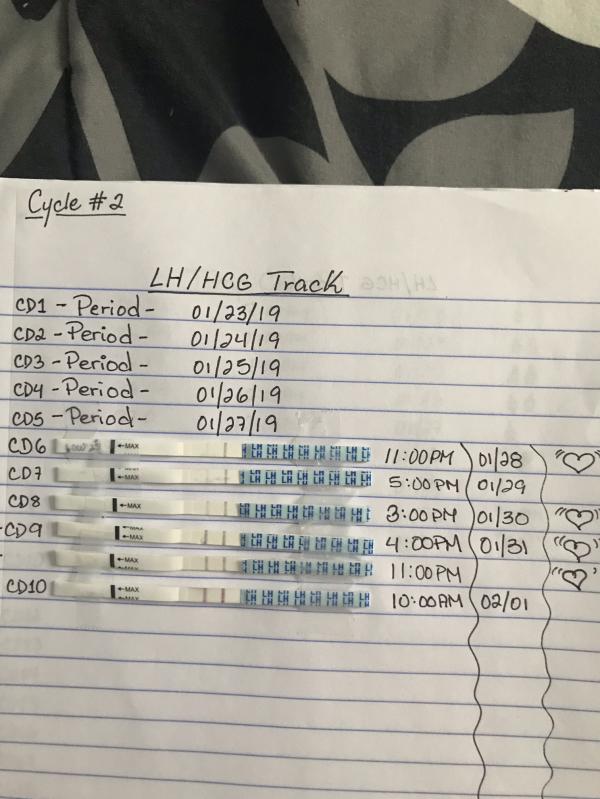 Cycle #2
LH/HCG Track
CD1 - Period - 01/23/19
CD2 - Period - 01/24/19
CD3 - Period - 01/25/19
CD4 - Period - 01/26/19
CD5 - Period - 01/27/19
CD6 ←MAX LH LH LH LH LH LH LH LH 11:00PM 01/28
CD7 ←MAX LH LH LH LH LH LH LH LH 5:00PM 01/29
CD8 ←MAX LH LH LH LH LH LH LH LH 3:00PM 01/30
-CD9 ←MAX LH LH LH LH LH LH LH LH 4:00PM 01/31
- ←MAX LH LH LH LH LH LH LH LH 11:00PM
CD10 ←MAX LH LH LH LH LH LH LH LH 10:00AM 02/01